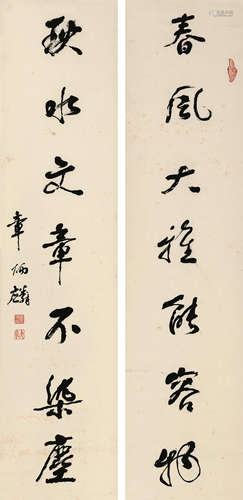 春风大雅能容物
秋水文章不染尘
章炳麟